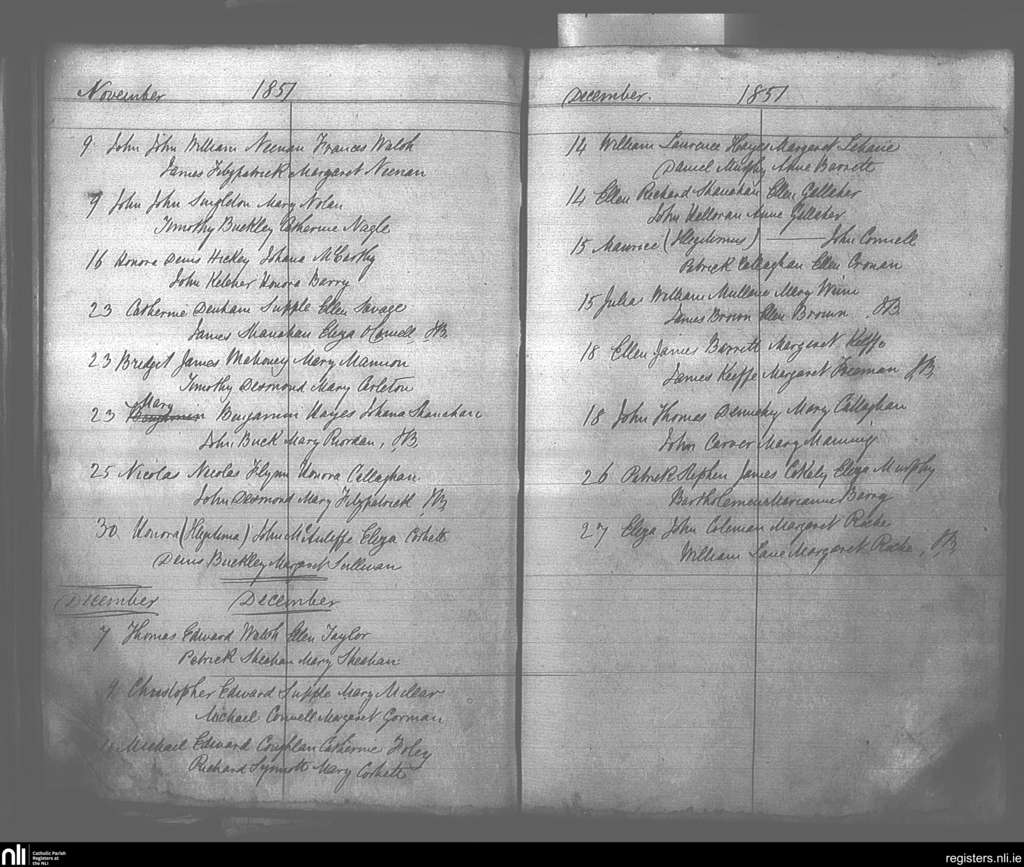 November 1851
9 John John William Neenan Frances Walsh
James Fitzpatrick Margaret Neenan
9 John John Singleton Mary Nolan
Timothy Buckley Catherine Nagle
16 Honora Denis Hickey Johana McCarthy
John Keleher Honora Barry
23 Catherine Denham Supple Ellen Savage
James Shanahan Eliza O'Connell
23 Bridget James Mahoney Mary Mannion
Timothy Desmond Mary Carleton
Mary
23 Benjamin Benjamin Hayes Johana Shanahan
John Buck Mary Riordan,
25 Nicolas Nicolas Flynn Honora Callaghan
John Desmond Mary Fitzpatrick
30 Honora (Illegitima) John McAuliffe Eliza Corbett
Denis Buckley Margaret Sullivan
December December
7 Thomas Edward Walsh Ellen Taylor
Patrick Sheehan Mary Sheehan
9 Christopher Edward Supple Mary
Michael Connell Margaret Gorman
Michael Edward Coughlan Catherine Foley
Richard Mary Corbett
December. 1851
14 William Laurence Hayes Margaret Lehane
Daniel Murphy Anne Barrett
14 Ellen Richard Shanahan Ellen Gallaher
John Halloran Anne Gallaher
15 Maurice (Illegitimus) John Connell
Patrick Callaghan Ellen Cronan
15 Julia William Mullane Mary
James Brown Ellen Brown
18 Ellen James Barrett Margaret Keiffe
James Keiffe Margaret Freeman
18 John Thomas Dennehy Mary Callaghan
John Carver Mary Manning
26 Patrick Stephen James Eliza Murphy
Bartholemew Marianne Barry
27 Eliza John Coleman Margaret Roche
William Lane Margaret Roche,
nli
Catholic Parish
Registers at
the NLI
registers.nli.ie